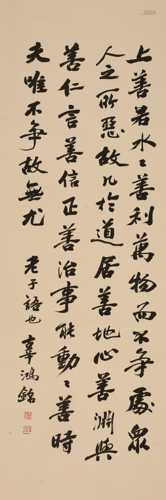 上善若水〻善利萬物而不爭處衆
人之所惡故几於道居善地心善淵與
善仁言善信正善治事能動〻善時
夫唯不爭故無尤 老子語也 辜鴻銘